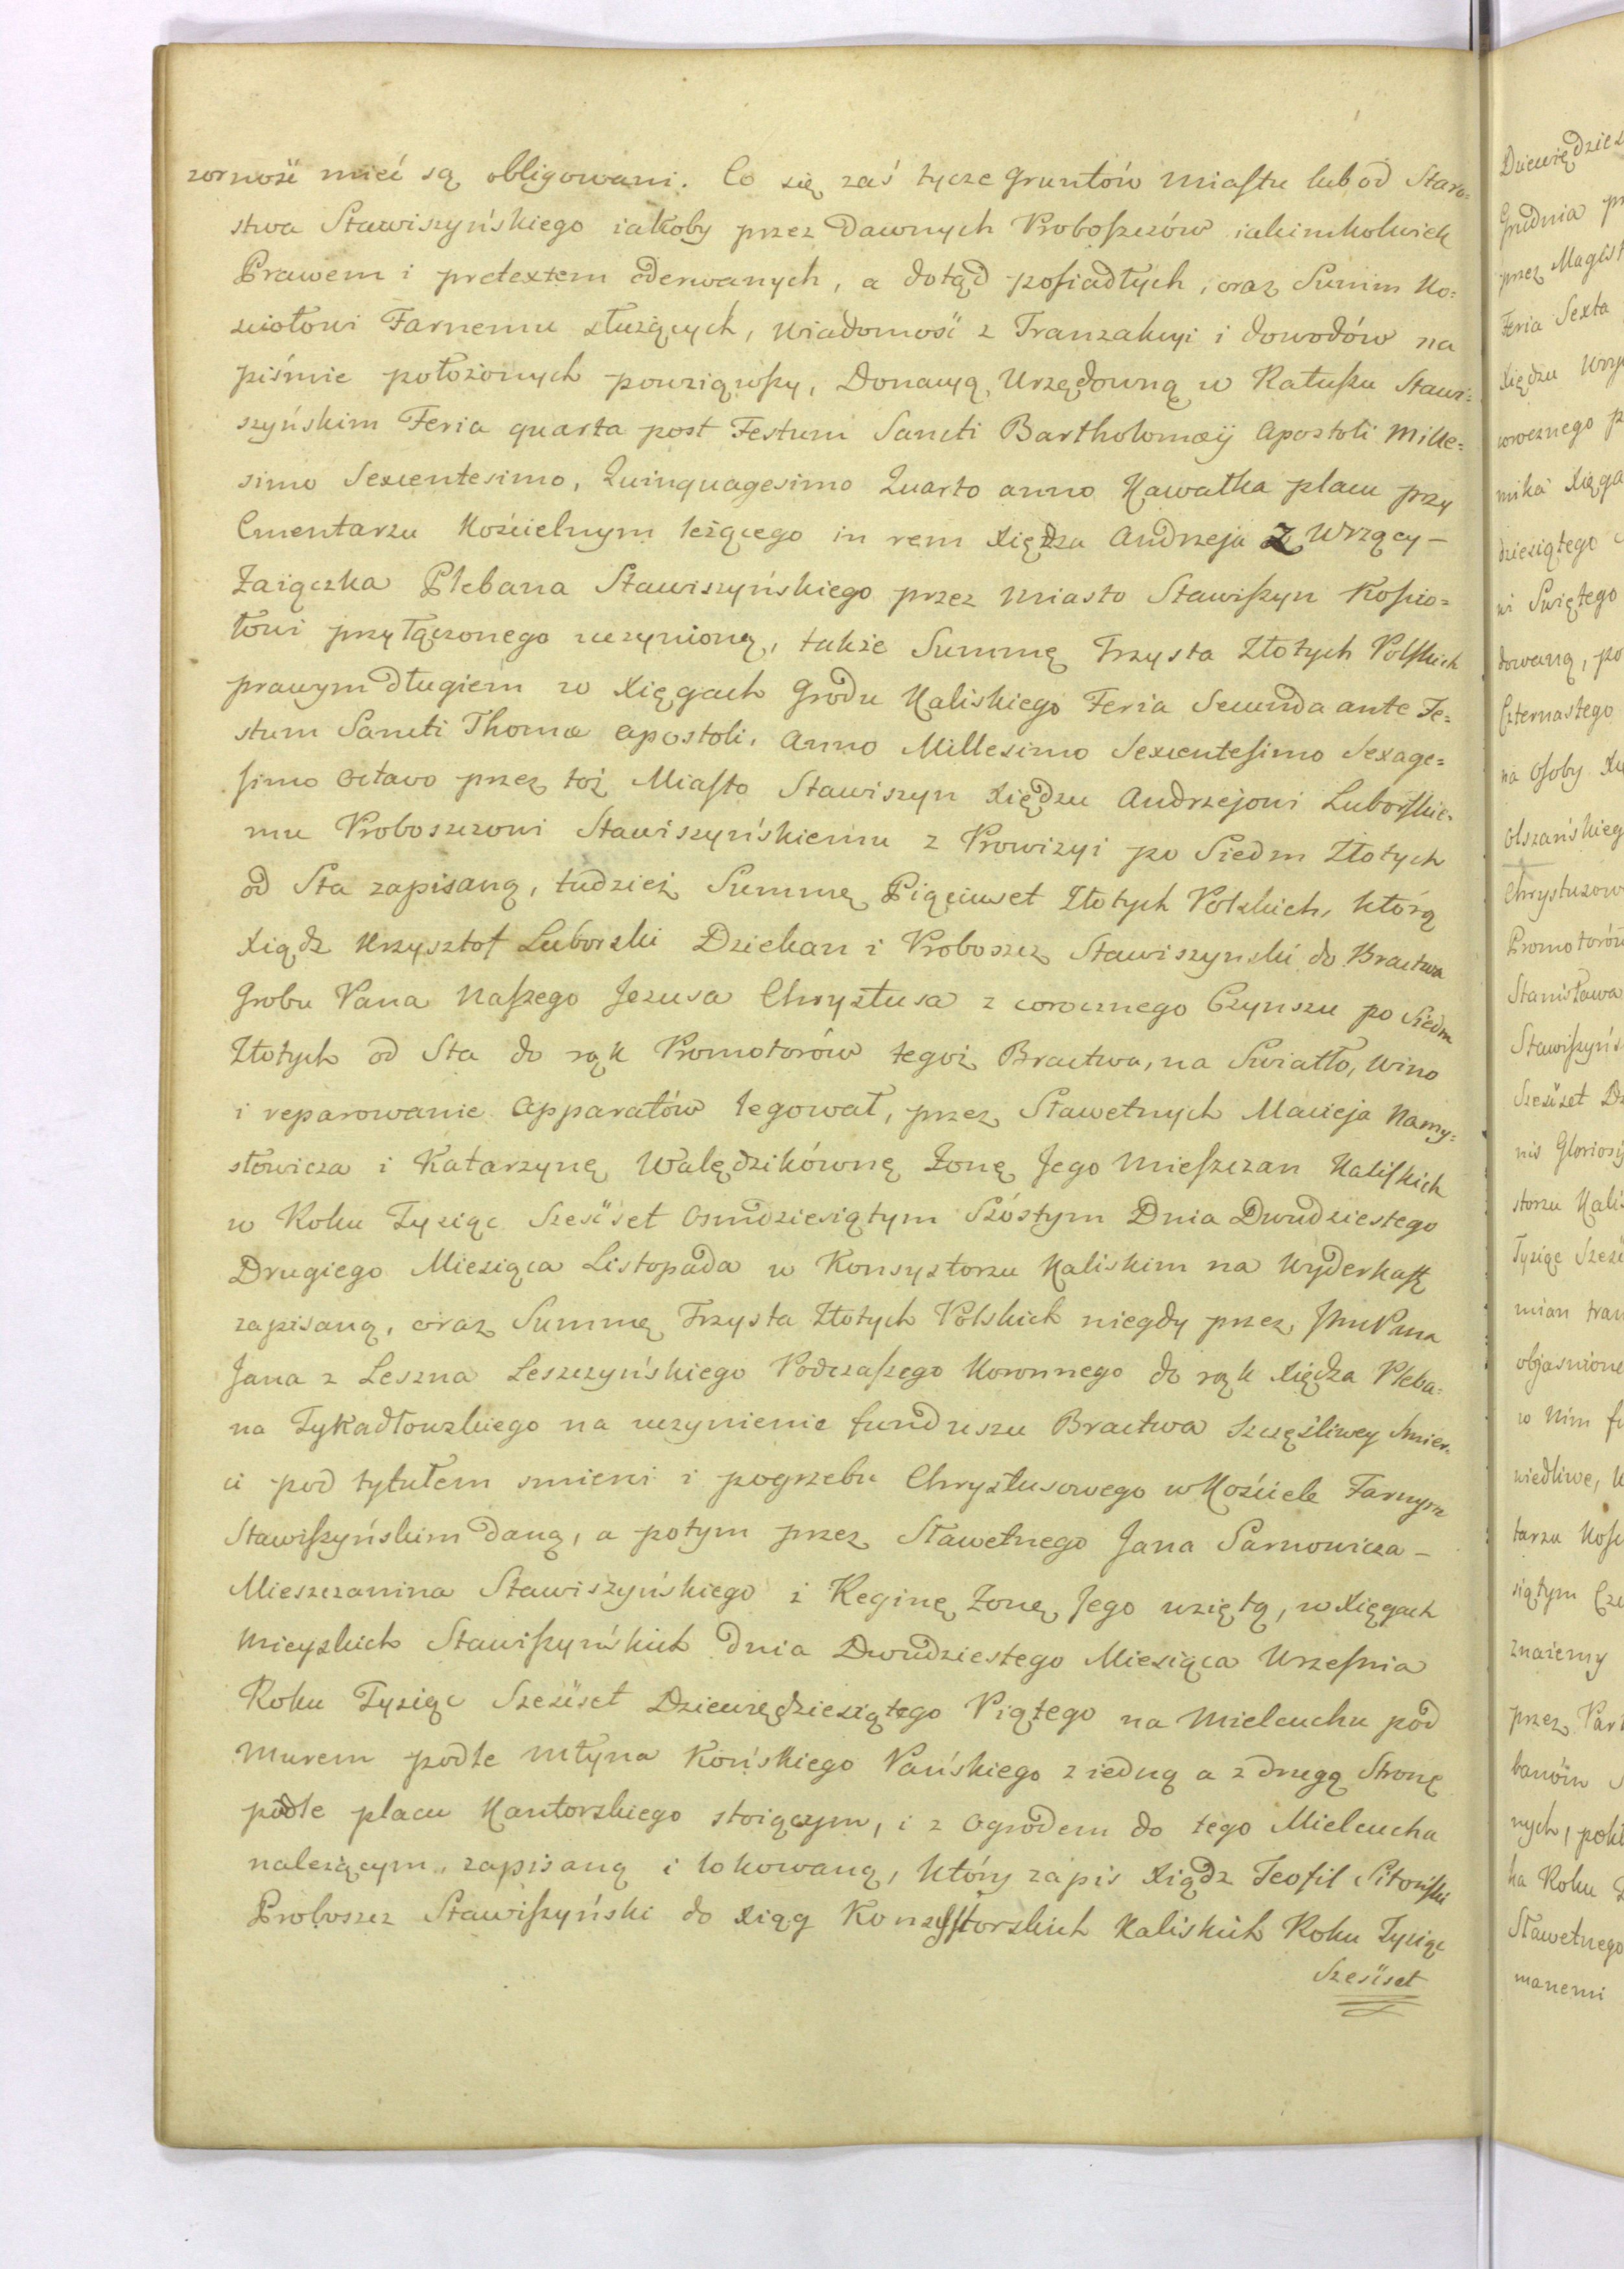 zorność mieć są obligowani. Co się zaś tycze gruntów Miastu lub od Staro=
stwa Stawiszyńskiego iakoby przez dawnych Proboszczów iakimkolwiek
Prawem i pretextem oderwanych, a dotąd posiadłych, oraz Summ Ko=
sciołowi Farnemu służących, wiadomość z Tranzakcyi i dowodów na
piśmie położonych powziąwszy, Donacyą Urzędowną w Ratuszu Stawi=
szyńskim Feria quarta post Festum Sancti Bartholomæij Apostoli Mille=
simo Sexcentesimo, Quinquagesimo Quarto anno Kawałka placu przy
Cmentarzu Kościelnym leżącego in rem Xiędza Andrzeja Z Wrzący –
Zaiączka Plebana Stawiszyńskiego przez Miasto Stawiszyn Kościo=
łowi przyłączonego uczynioną, także Summę Trzysta Złotych Polskich
prawym długiem w Xięgach Grodu Kaliskiego Feria Secunda ante Fe=
stum Sancti Thomæ Apostoli, Anno Millesimo Sexcentesimo Sexage=
simo Octavo przez toż Miasto Stawiszyn Xiędzu Andrzejowi Luborskie=
mu Proboszczowi Stawiszyńskiemu z Prowizyi po Siedm Złotych
od Sta zapisaną, tudzież Summę Pięciuset Złotych Polskich, którą
Xiądz Krzysztof Luborski Dziekan i Proboszcz Stawiszynski do Bractwa
Grobu Pana Naszego Jezusa Chrystusa z corocznego Czynszu po Siedm
Złotych od Sta do rąk Promotorów tegoż Bractwa, na Swiatło, Wino
i reparowanie Apparatów legował, przez Sławetnych Macieja Namy=
słowicza i Katarzynę Walędzikównę Zonę Jego Mieszczan Kaliskich
w Roku Tysiąc Sześćset Osmdziesiątym Szóstym Dnia Dwudziestego
Drugiego Miesiąca Listopada w Konsystorzu Kaliskim na Wyderkaff
zapisaną, oraz Summę Trzysta Złotych Polskich niegdy przez JmPana
Jana z Leszna Leszczyńskiego Podczaszego Koronnego do rąk Xiędza Pleba=
na Tykadłowskiego na uczynienie funduszu Bractwa Szczęśliwey Smier=
ci pod tytułem smierci i pogrzebu Chrystusowego w Kościele Farnym
Stawiszyńskim daną, a potym przez Sławetnego Jana Sarnowicza –
Mieszczanina Stawiszyńskiego i Reginę Zonę Jego wziętą, w Xięgach
Mieyskich Stawiszyńskich dnia Dwudziestego Miesiąca Września
Roku Tysiąc Sześćset Dziewiędziesiątego Piątego na Mielcuchu pod
Murem podle Młyna Końskiego Pańskiego z iedną a z drugą Stronę
podle placu Kantorskiego stoiącym, i z Ogrodem do tego Mielcucha
należącym, zapisaną i lokowaną, który zapis Xiądz Teofil Sitoński
Proboszcz Stawiszyński do Xiąg Konsystorskich Kaliskich Roku Tysiąc
Sześćset
Dziewiędzies
Grudnia pr
przez Magist
Feria Sexta
Xiędzu
corocznego p
mika Xięga
dziesiątego
wi Swiętego
dowaną, po
Czternastego
na Osoby Xi
Olszańskieg
Chrystusow
Promotorów
Stanisława
Stawiszyńs
Sześćset Dz
nis Gloriosi
storzu Kalis
Tysiąc Sześć
mian tran
objasnione
w Nim fu
wiedliwe, k
tarzu Kośc
siątym Cz
znaiemy
przez Par
banów S
nych, pok
ka Roku
Sławetnego
manemi